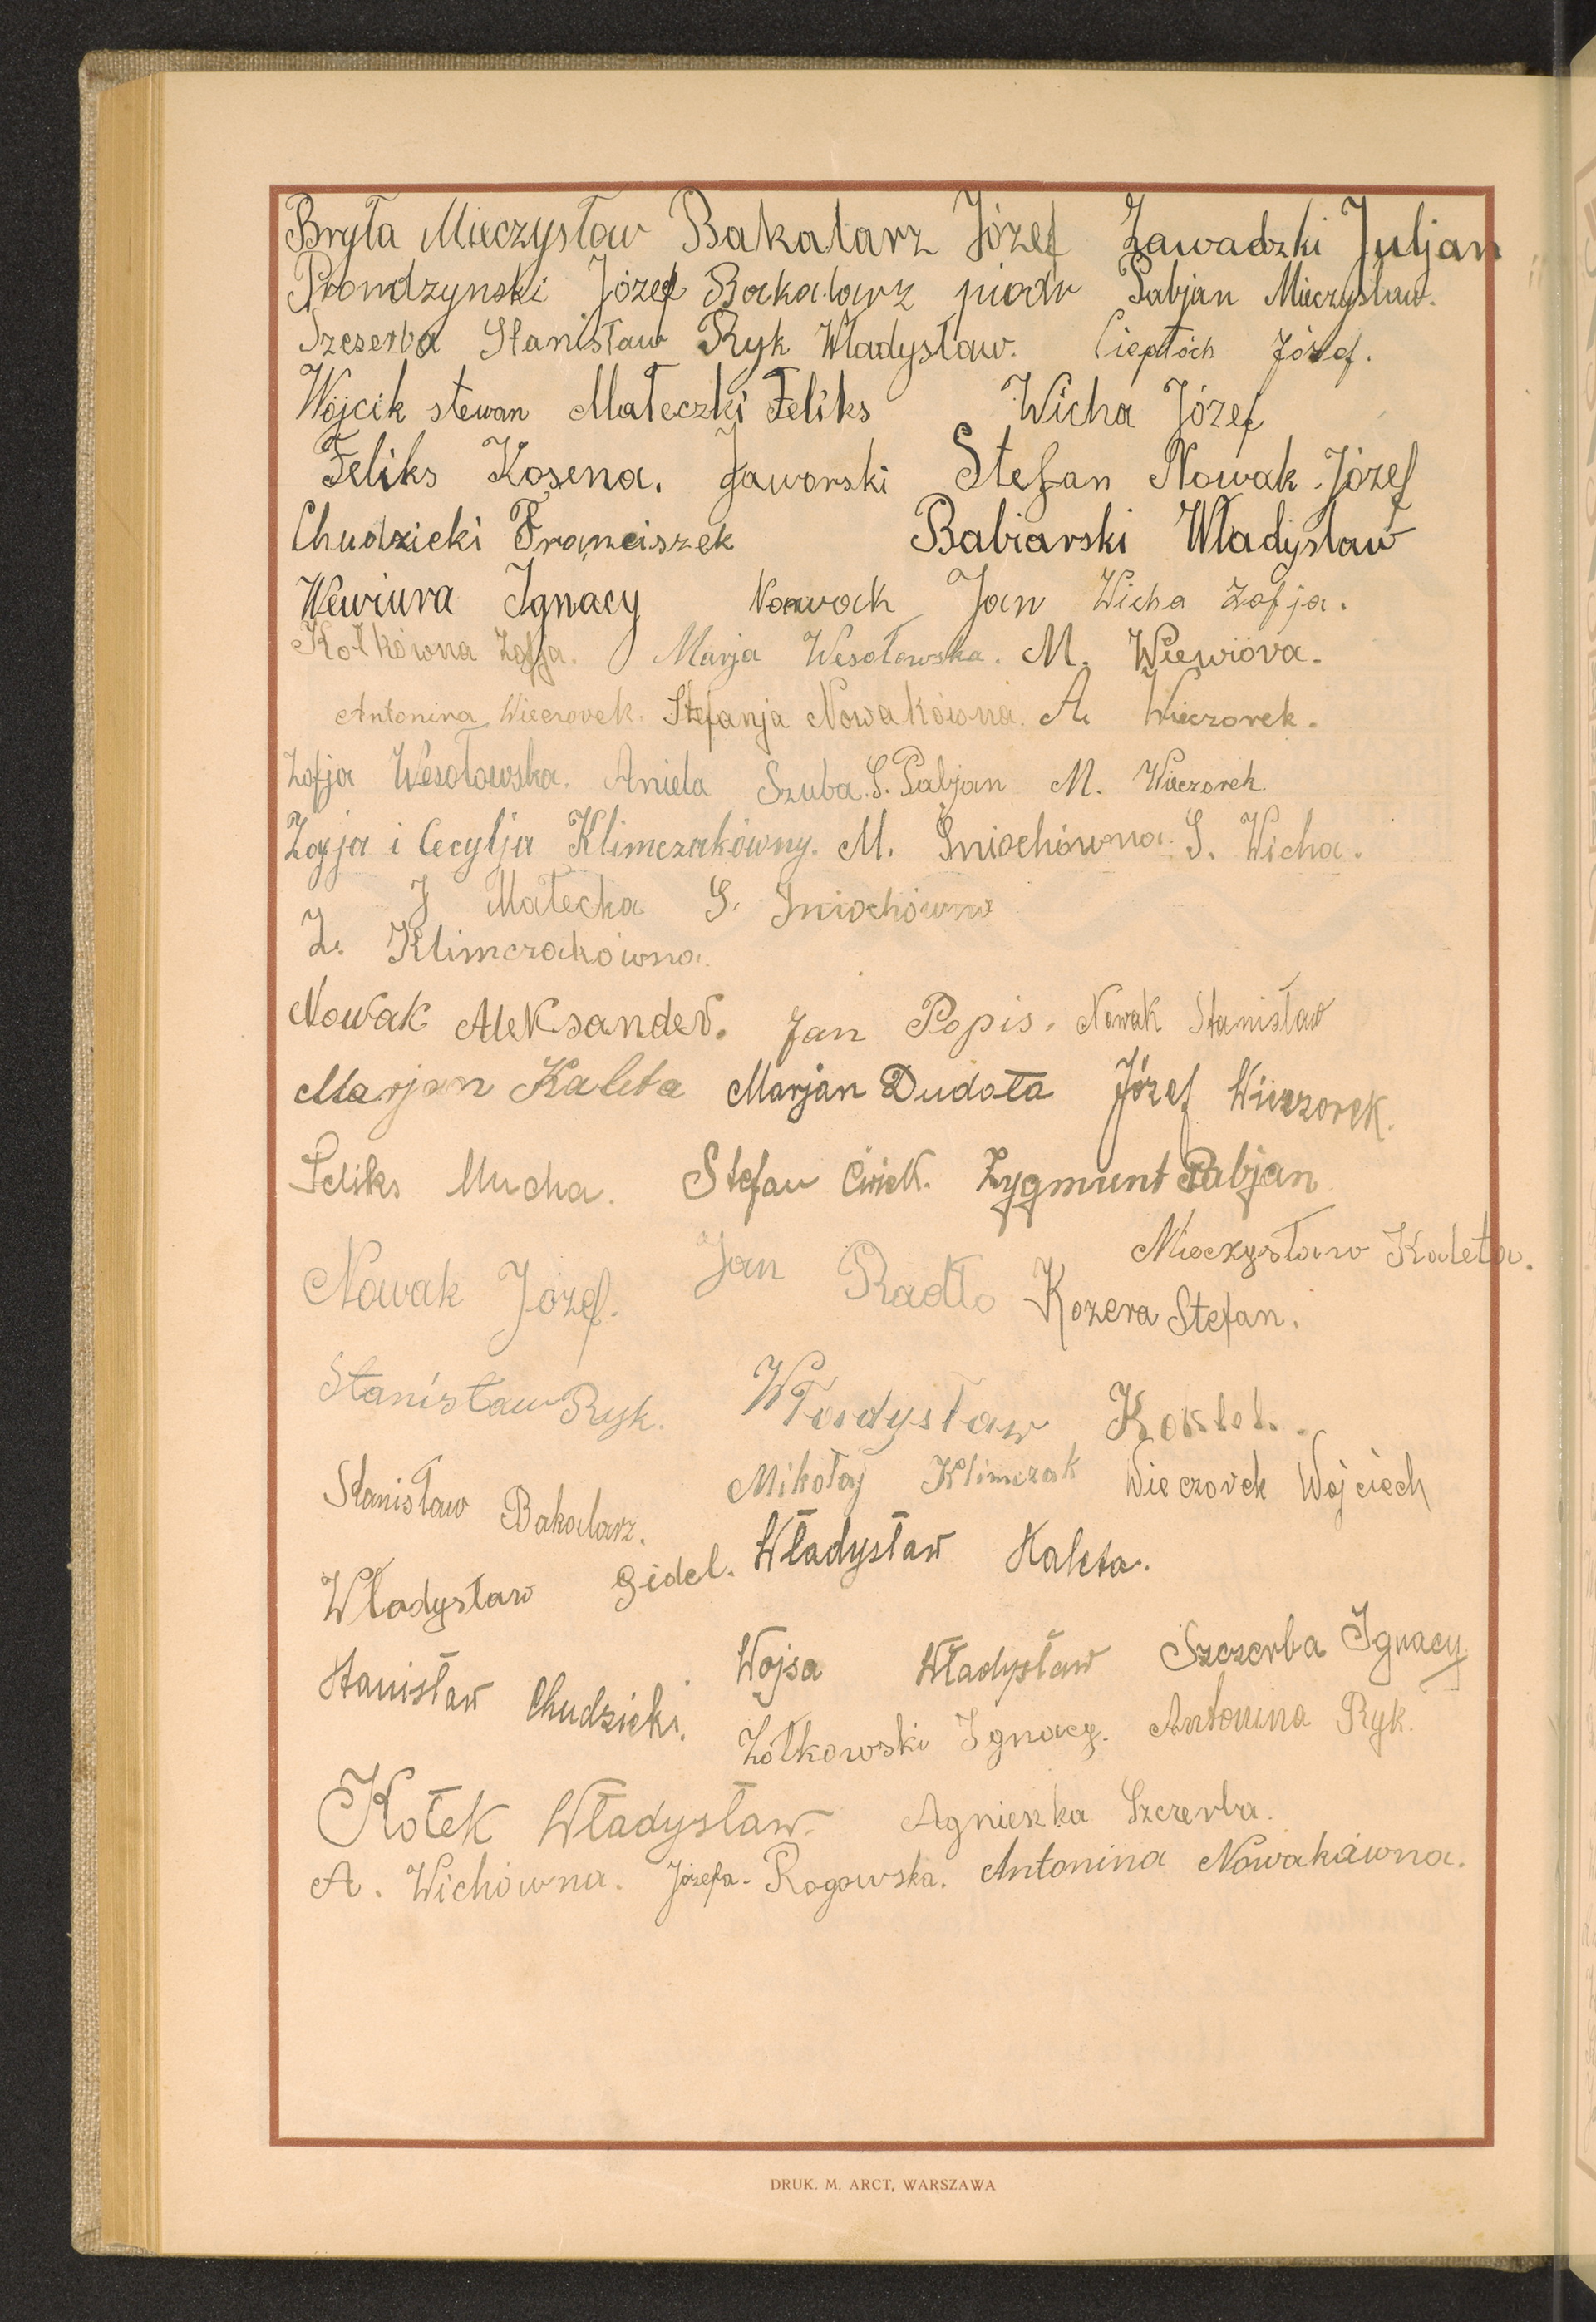 Bryła Mieczysław Bakalarz Józef Zawadzki Juljan
Prondzynski Józef Bakalarz piodr Pabjan Mieczysław.
Szeserba Stanisław Ryk Władysław. Ciepłóch Józef.
Wójcik stewan Małeczki Feliks Wicha Józef
Feliks Kosena. Jaworski Stefan Nowak Józef
Chudzicki Franciszek Babiarski Władysław
Wewiura Ignacy Nowack Jan Wicha Zofja.
Kotkówna Zofja. Marja Wesołowska. M. Wiewióra.
Antonina Wieczorek. Stefanja Nowakówna. A. Wieczorek.
Zofja Wesołowska. Aniela Szuba. S. Pabjan M. Wieczorek.
Zofja i Cecylja Klimczakówny. M. Gniochówna. S. Wicha.
J Małecka S. Gniochówna
Z. Klimczakówna.
Nowak Aleksander. Jan Popis. Nowak Stanisław
Marjan Kaleta Marjan Dudała Józef Wieczorek.
Feliks Mucha. Stefan Ćwiek. Zygmunt Pabjan
Mieczysław Kaleta.
Nowak Józef. Jan Radło Kozera Stefan.
Stanisław Ryk. Władysław Kostel.
Stanisław Bakalarz. Mikołaj Klimczak Wieczorek Wojciech
Władysław Gidel. Władysław Kaleta.
Stanisław Chudzicki. Wojsa Władysław Szczerba Ignacy
Żółkowski Ignacy. Antonina Ryk.
Kołek Władysław. Agnieszka Szczerba.
A. Wichówna. Józefa Rogowska. Antonina Nowakówna.
DRUK. M. ARCT, WARSZAWA